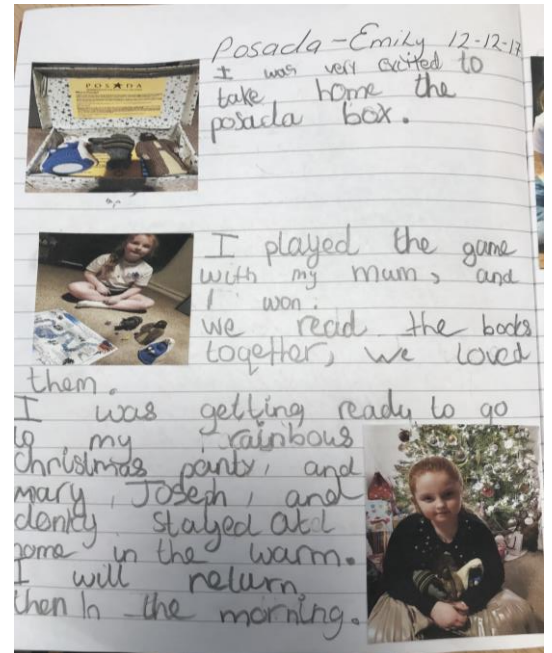 Posada - Emily 12-12-17
I was very excited to
take home the
posada box.
POSADA
I played the game
with my mum, and
I won.
we read the books
together, we loved
them.
I was getting ready to go
to my rainbous
christmas party, and
mary, Joseph, and
donky stayed at
home in the warm.
I will return
then in the morning.